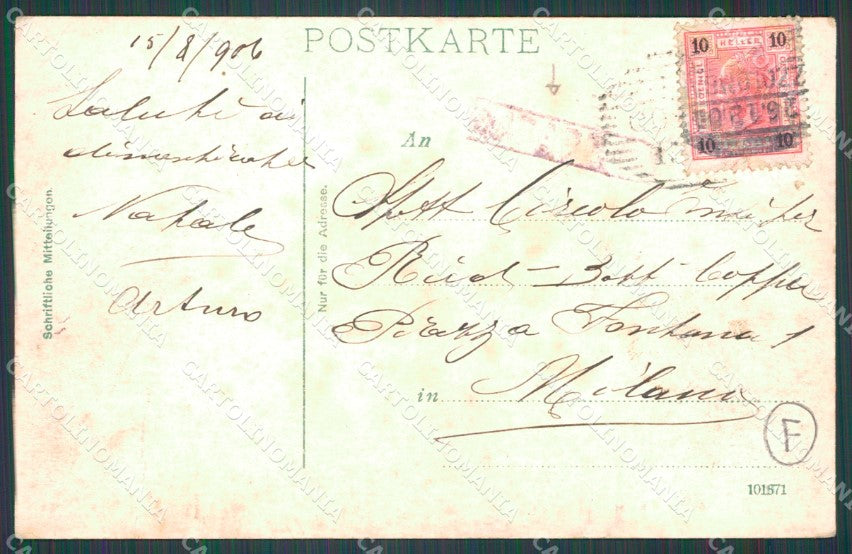 POSTKARTE
15/8/906
Saluti di
Natale
Arturo
Schriftliche Mitteilungen.
Nur für die Adresse.
An
Spett Circolo
Rud Bott
Piazza Fontana 1
in Milano
10 HELLER 10
10 10
F
101871
CARTOLINOMANIA